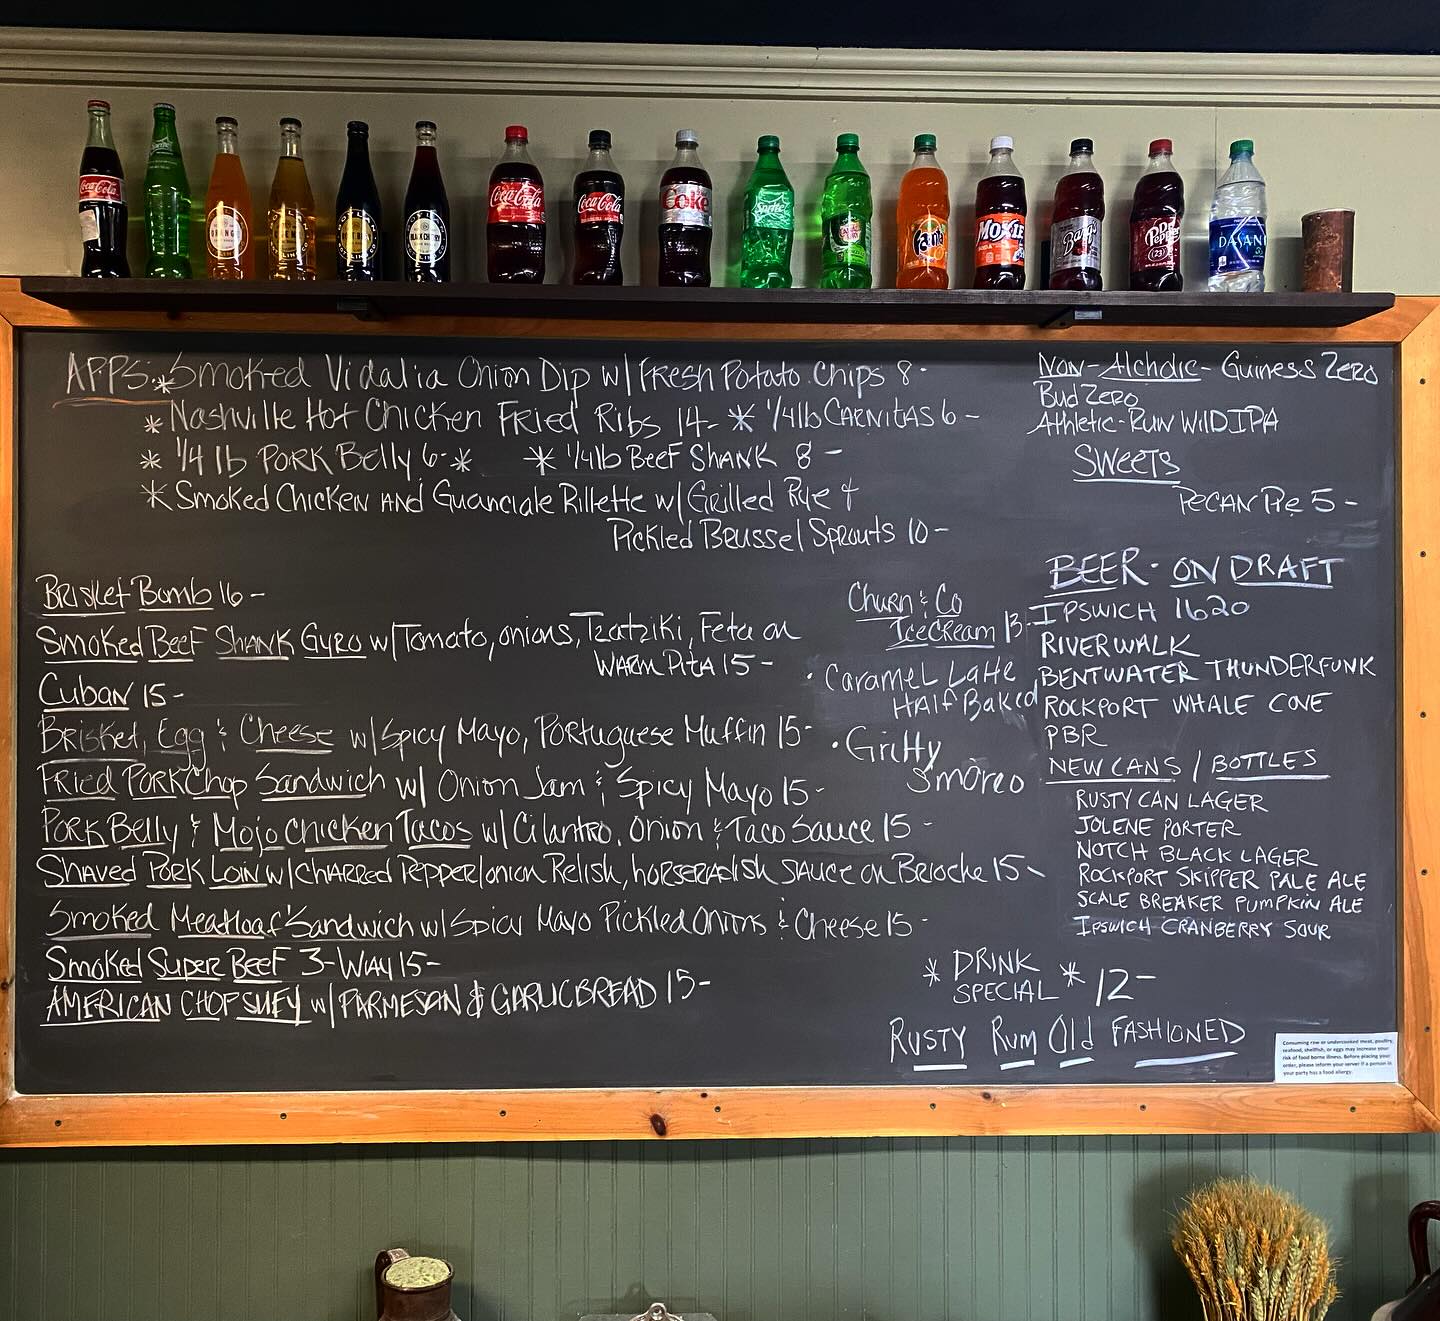 Coca-Cola
Sprite
BLACK CHERRY
Coca-Cola
Coca-Cola
Diet
Coke
Sprite
Fanta
MOXIE
Barq's
Dr Pepper
(23)
DASANI
APPS: * Smoked Vidalia Onion Dip w/ Fresh Potato Chips 8-
* Nashville Hot Chicken Fried Ribs 14- * 1/4lb Carnitas 6-
* 1/4 lb Pork Belly 6- * * 1/4lb Beef Shank 8-
* Smoked Chicken and Guanciale Rillette w/ Grilled Rye &
Pickled Brussel Sprouts 10-
Brisket Bomb 16-
Smoked Beef Shank Gyro w/ Tomato, onions, Tzatziki, Feta on
Warm Pita 15-
Cuban 15-
Brisket, Egg & Cheese w/ Spicy Mayo, Portuguese Muffin 15-
Fried Pork Chop Sandwich w/ Onion Jam & Spicy Mayo 15-
Pork Belly & Mojo Chicken Tacos w/ Cilantro, Onion & Taco Sauce 15-
Shaved Pork Loin w/ Charred Pepper/onion Relish, horseradish sauce on Brioche 15-
Smoked Meatloaf Sandwich w/ Spicy Mayo Pickled Onions & Cheese 15-
Smoked Super Beef 3-Way 15-
AMERICAN CHOP SUEY w/ PARMESAN & GARLIC BREAD 15-
Churn & Co
Icecream 13-
· Caramel Latte
Half Baked
· Gritty
Smoreo
Non-Alcholic- Guiness Zero
Bud Zero
Athletic-Run Wild IPA
Sweets
Pecan Pie 5-
BEER- ON DRAFT
IPSWICH 1620
RIVERWALK
BENTWATER THUNDERFUNK
ROCKPORT WHALE COVE
PBR
NEW CANS / BOTTLES
RUSTY CAN LAGER
JOLENE PORTER
NOTCH BLACK LAGER
ROCKPORT SKIPPER PALE ALE
SCALE BREAKER PUMPKIN ALE
IPSWICH CRANBERRY SOUR
* DRINK
SPECIAL * 12-
RUSTY Rum Old FASHIONED
Consuming raw or undercooked meat, poultry,
seafood, shellfish, or eggs may increase your
risk of food borne illness. Before placing your
order, please inform your server if a person in
your party has a food allergy.